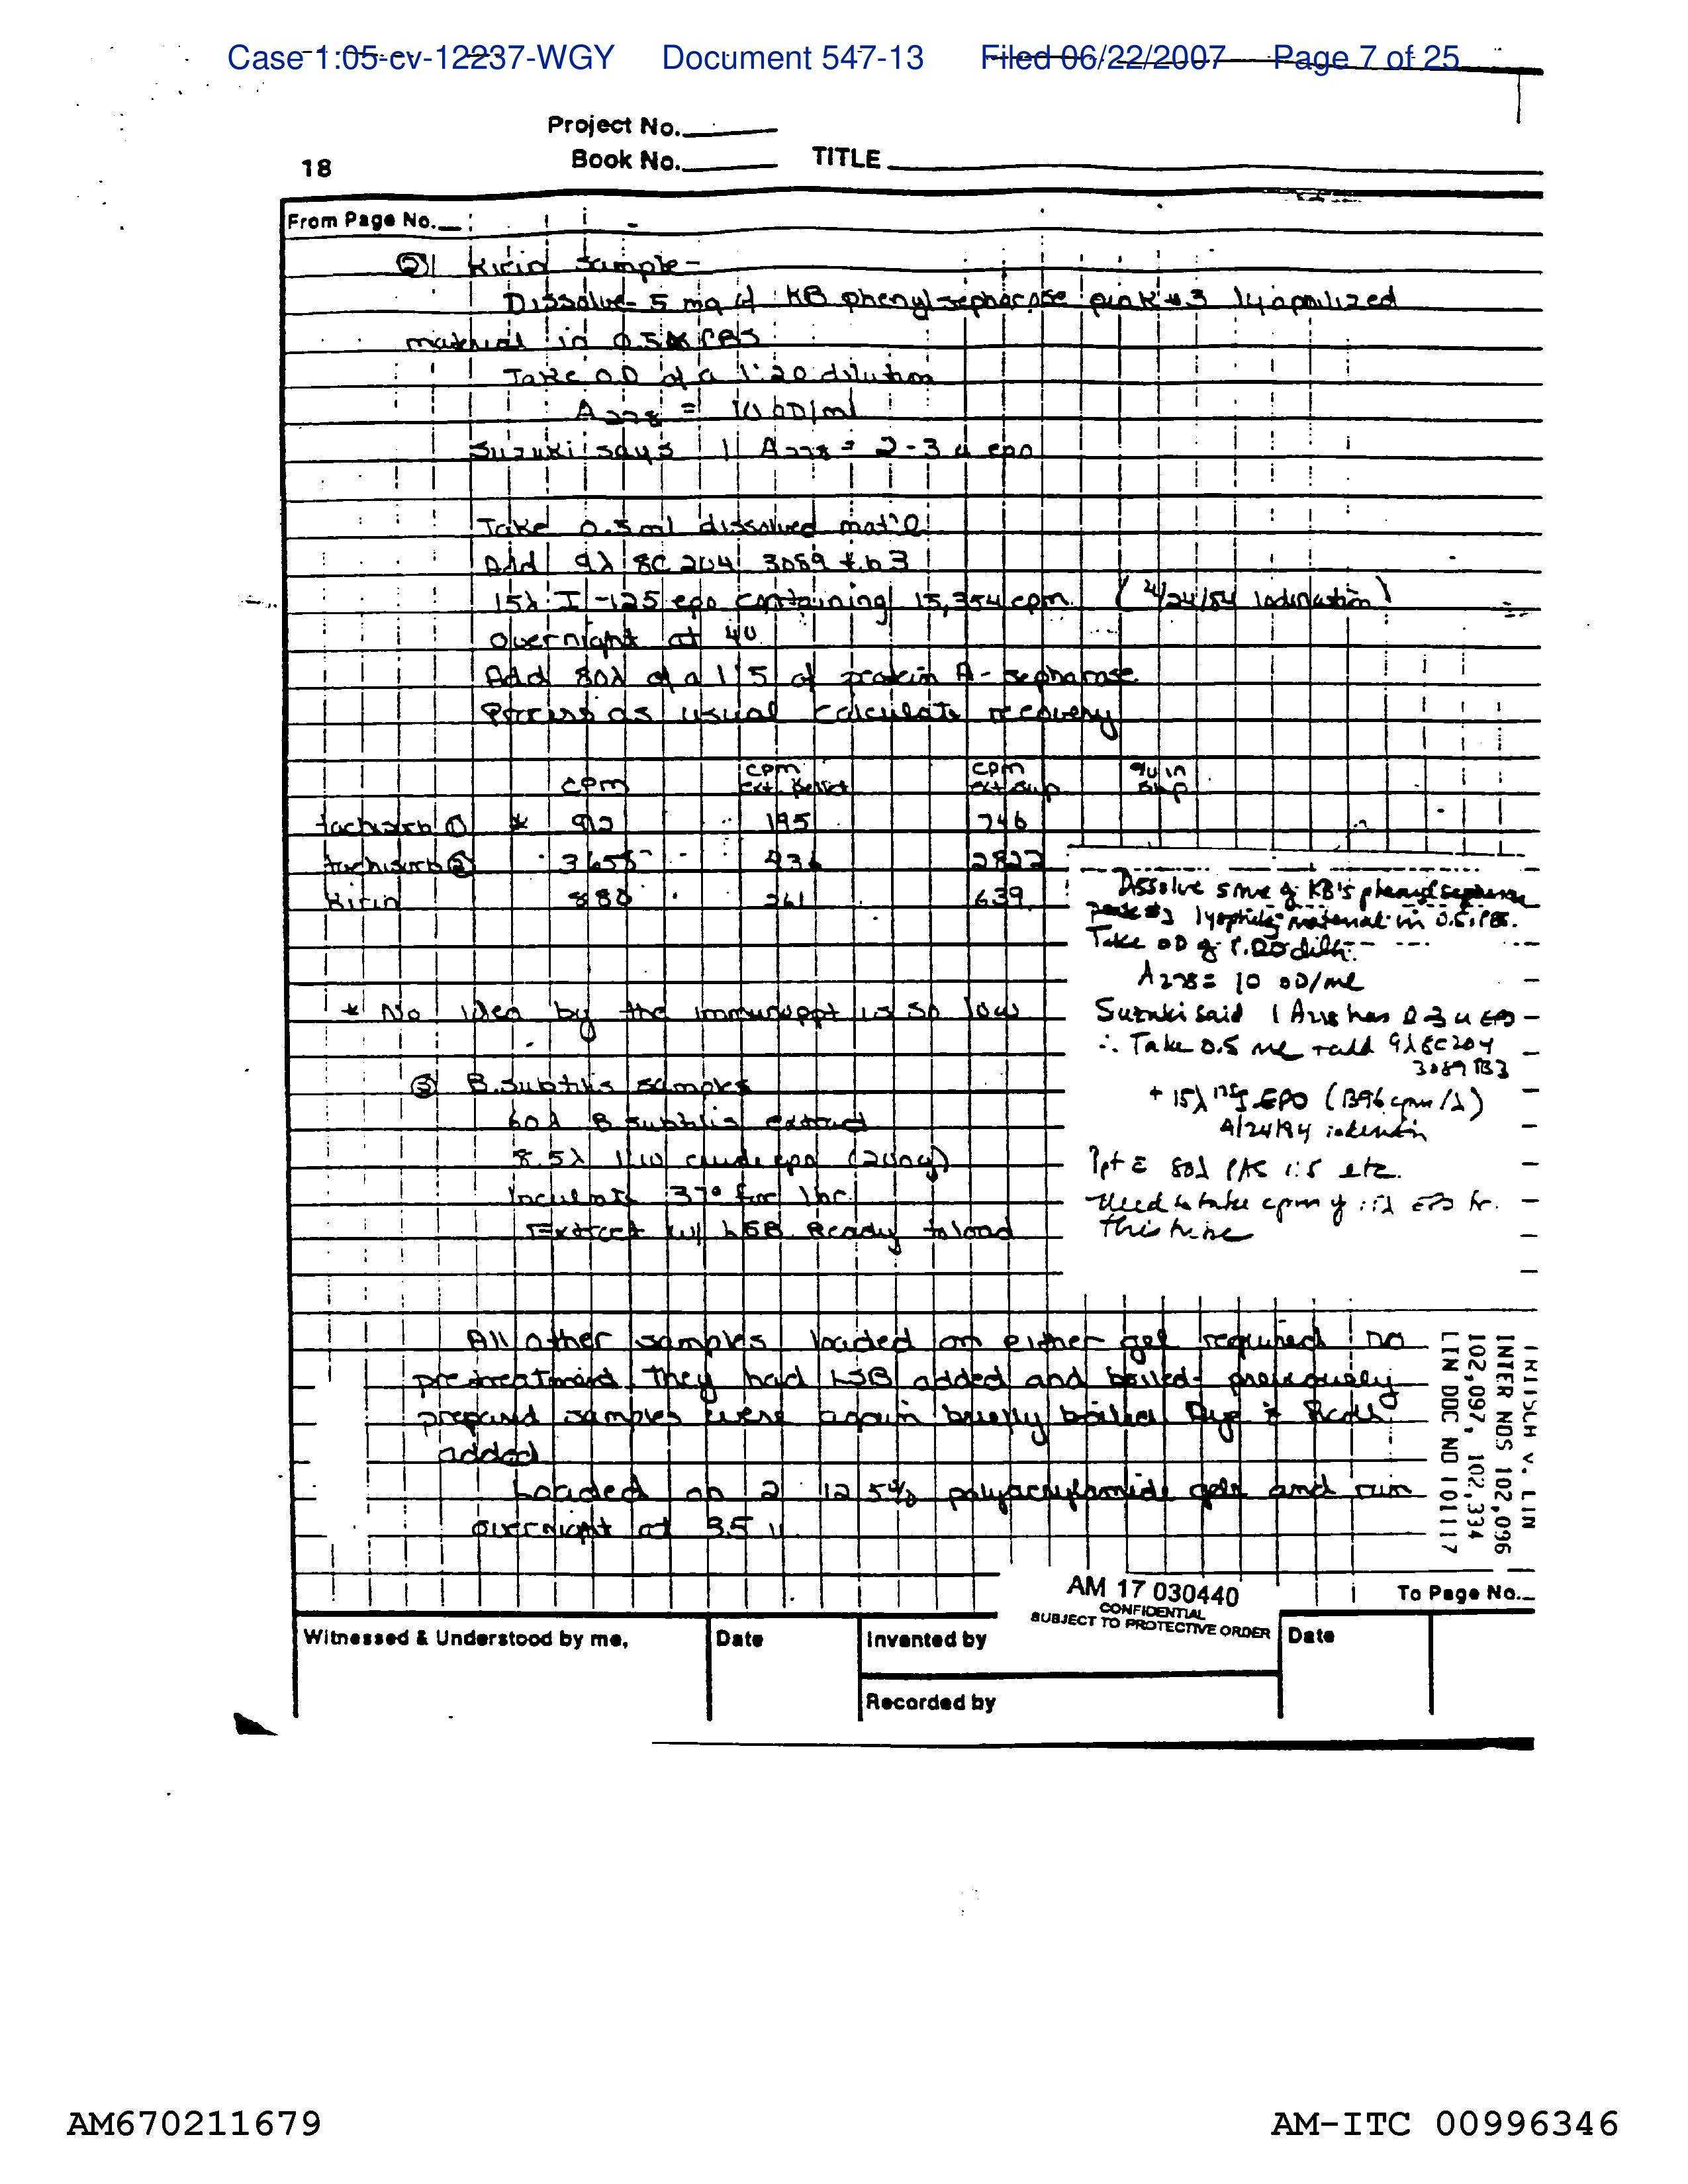 Case 1:05-cv-12237-WGY Document 547-13 Filed 06/22/2007 Page 7 of 25
Project No.
18
Book No. TITLE
From Page No.
② Kirin sample-
Dissolve 5 mg of KB phenyl sepharose peak #3 lyophilized
material in 0.5 PBS
Take OD of a 1:20 dilution
A278 = 10 OD/ml
Suzuki says 1 A278 = 2-3 u epo
Take 0.5 ml dissolved mat'l
Add 9λ 8C204 3089 b3
15λ I-125 epo containing 15,354 cpm (4/24/84 iodination)
overnight at 4°
Add 80λ of a 1:5 of protein A-sepharose
Process as usual calculate recovery
cpm cpm ext. pellet cpm ext sup % in sup
tachisorb ① * 912 195 746
tachisorb ② 3655 936 2822
Kirin 880 261 639
* No idea by the immunoppt is so low
Dissolve 5 mg of KB's phenyl sepharose
peak #3 material in 0.5 PBS.
Take OD of 1:20 diln.
A278 = 10 OD/ml
Suzuki said 1 A278 has 2-3 u EPO
∴ Take 0.5 ml + add 9λ 8C204
3089 B3
+ 15λ 125I EPO (1396 cpm/λ)
4/24/84
Ppt c̄ 80λ PAS 1:5 etc.
Need to take cpm of EPO for
this time
③ B. subtilis samples
60λ B subtilis extract
8.5λ 1:10 crude epo (240ng)
Incubate 37° for 1hr.
Extract w/ LSB. Ready to load
All other samples loaded on either gel required no
pretreatment. They had LSB added and boiled- previously
prepared samples were again briefly boiled. Dye & Beads
added
Loaded on 2 12.5% polyacrylamide gels and run
overnight at 35 v
FRITSCH V. LIN
INTER NOS 102,096
102,097, 102,334
LIN DOC NO 101117
AM 17 030440
CONFIDENTIAL
SUBJECT TO PROTECTIVE ORDER
To Page No.
Witnessed & Understood by me, Date Invented by Date
Recorded by
AM670211679 AM-ITC 00996346